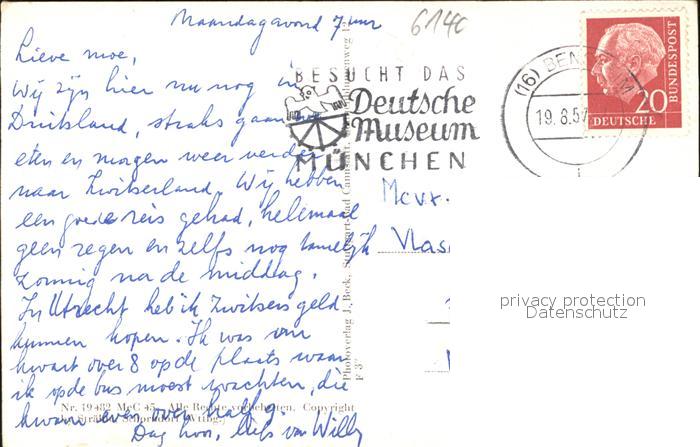 Maandagavond 7 uur
6140
Lieve moe,
Wij zijn hier nu nog in
Duitsland, straks gaan we
eten en morgen weer verder
naar Zwitserland. Wij hebben
een goede reis gehad, helemaal
geen regen en zelfs nog tamelijk
zonnig na de middag.
In Utrecht heb ik Zwitsers geld
kunnen kopen. Ik was om
kwart over 8 op de plaats waar
ik op de bus moest wachten, die
kwam even over half 9.
Dag hoor, liefs van Willy
BESUCHT DAS
Deutsche
Museum
MÜNCHEN
(16)
19.8.57
BUNDESPOST
20
DEUTSCHE
Mevr.
Vlas
privacy protection
Datenschutz
Photoverlag J. Beck, Stuttgart-Bad Cannstatt
F 3
Nr. 19482 McC 45 Alle Rechte vorbehalten. Copyright